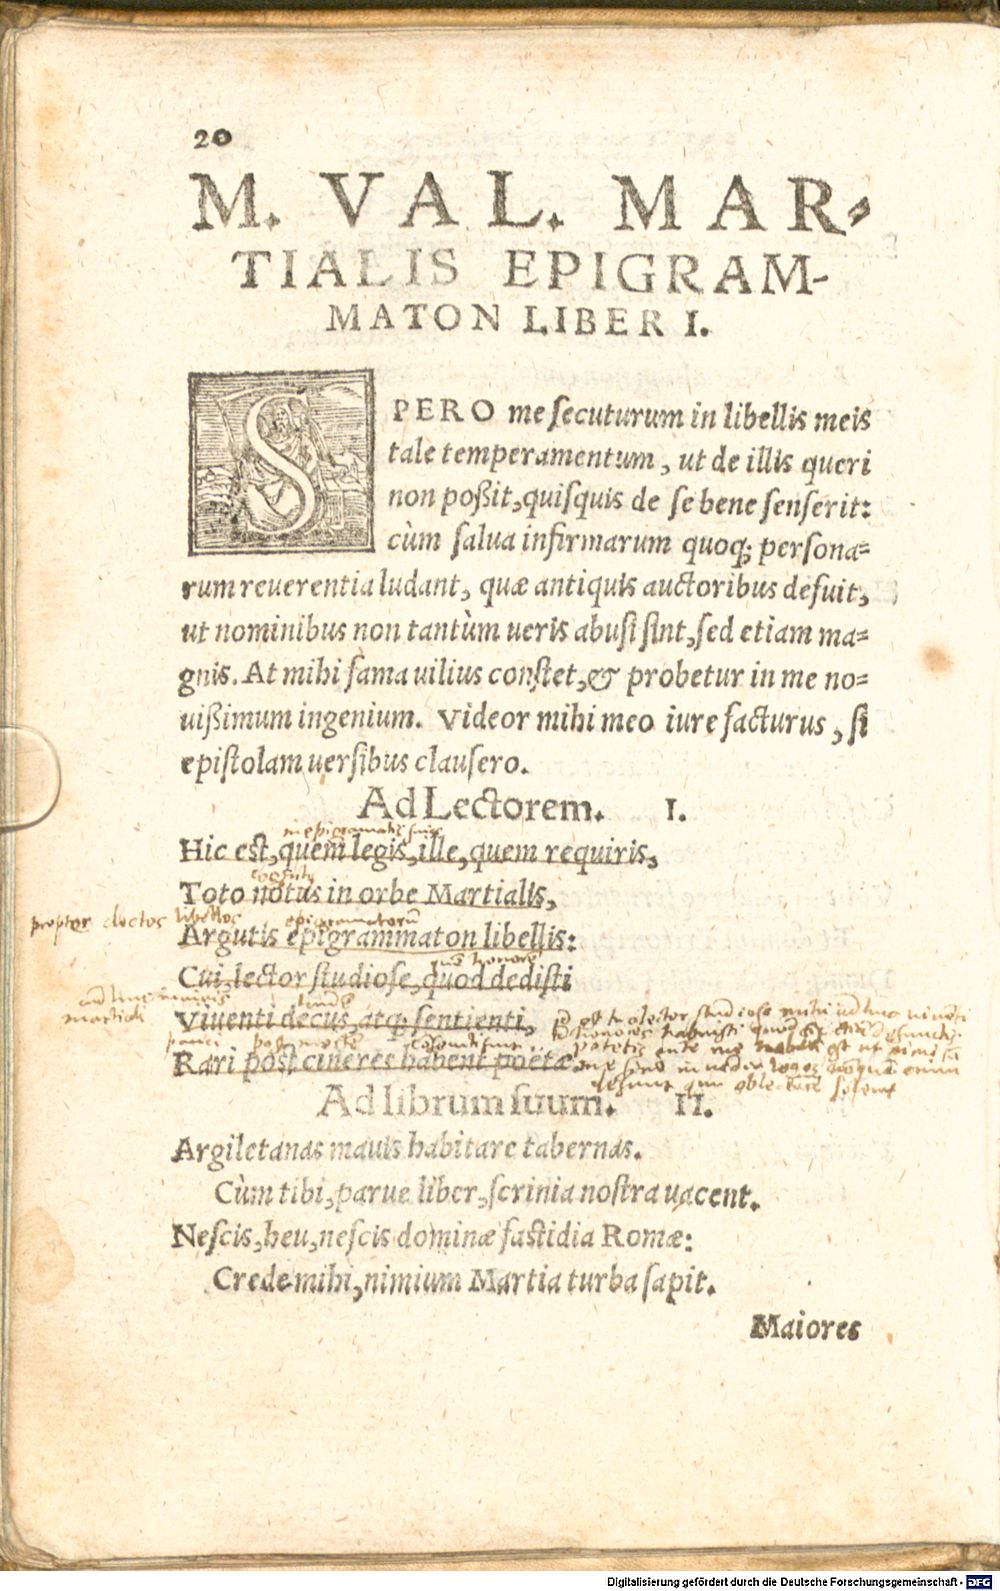 20
M. VAL. MAR-
TIALIS EPIGRAM-
MATON LIBER I.
SPERO me ſecuturum in libellis meis
tale temperamentum, ut de illis queri
non poßit, quiſquis de ſe bene ſenſerit:
cùm ſalua infirmarum quoq; perſona-
rum reuerentia ludant, quæ antiquis auctoribus defuit,
ut nominibus non tantùm ueris abuſi ſint, ſed etiam ma-
gnis. At mihi fama uilius conſtet, & probetur in me no-
uißimum ingenium. Videor mihi meo iure facturus, ſi
epiſtolam uerſibus clauſero.
Ad Lectorem. I.
Hic eſt, quem legis, ille, quem requiris,
Toto notus in orbe Martialis,
propter doctos libellos epigramatorū
Argutis epigrammaton libellis:
Cui, lector ſtudioſe, quod dediſti
martiali
Viuenti decus, atq; ſentienti,
pauci post mortē
Rari poſt cineres habent poëtæ.
Ad librum ſuum. II.
Argiletanas mauis habitare tabernas.
Cùm tibi, parue liber, ſcrinia noſtra uacent.
Neſcis, heu, neſcis dominæ faſtidia Romæ:
Crede mihi, nimium Martia turba ſapit.
Maiores
Digitalisierung gefördert durch die Deutsche Forschungsgemeinschaft - DFG